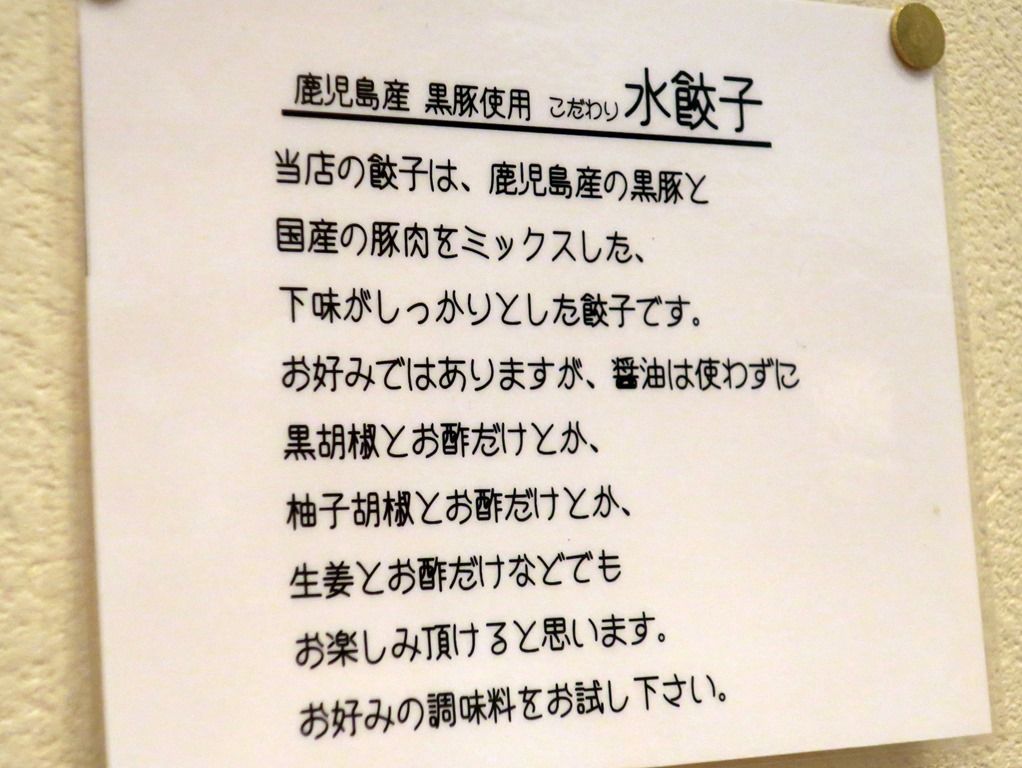 鹿児島産 黒豚使用 こだわり水餃子
当店の餃子は、鹿児島産の黒豚と
国産の豚肉をミックスした、
下味がしっかりとした餃子です。
お好みではありますが、醤油は使わずに
黒胡椒とお酢だけとか、
柚子胡椒とお酢だけとか、
生姜とお酢だけなどでも
お楽しみ頂けると思います。
お好みの調味料をお試し下さい。